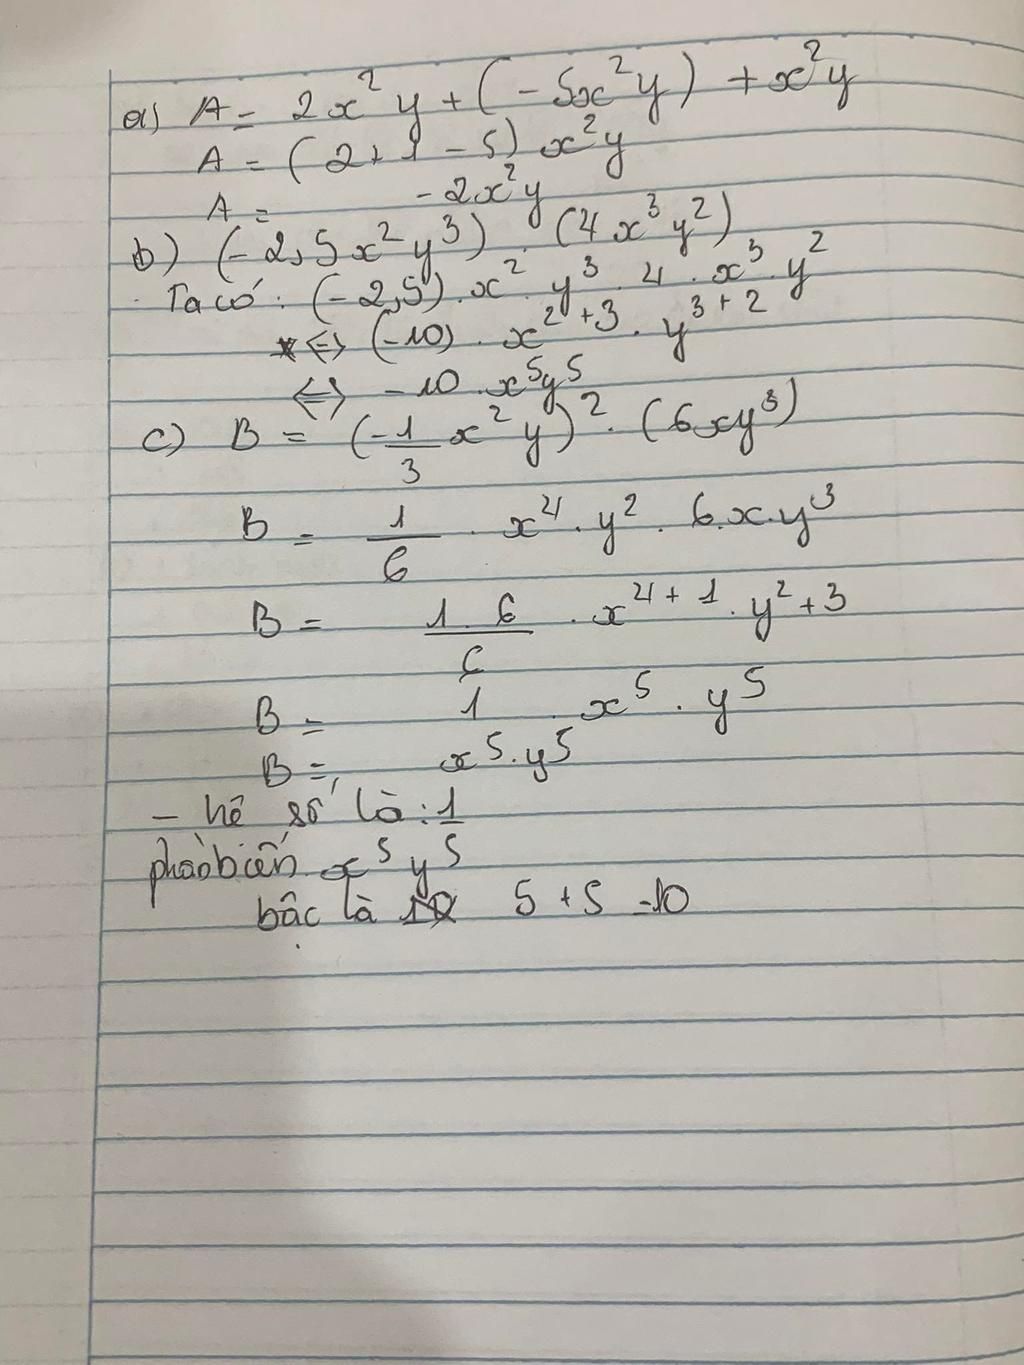 a) A = 2x²y + (-5x²y) + x²y
A = (2+1-5) x²y
A = -2x²y
b) (-2,5x²y³) . (4x³y²)
Ta có : (-2,5) . x² . y³ . 4 . x³ . y²
<=> (-10) . x²⁺³ . y³⁺²
<=> -10 . x⁵y⁵
c) B = (-1/3 x²y)² . (6xy³)
B = 1/6 . x⁴ . y² . 6.x.y³
B = 1.6/6 . x⁴⁺¹ . y²⁺³
B = 1 . x⁵ . y⁵
B = x⁵.y⁵
- hê số là : 1
phần biến x⁵y⁵
bậc là 10 5+5 =10